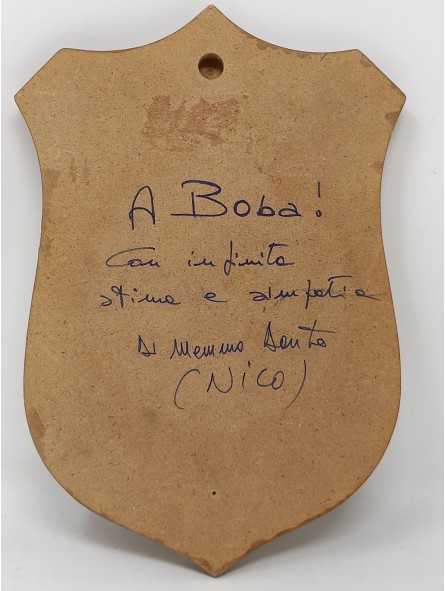 A Boba!
Con infinita
stima e simpatia
Di Memmo Santo
(NICO)